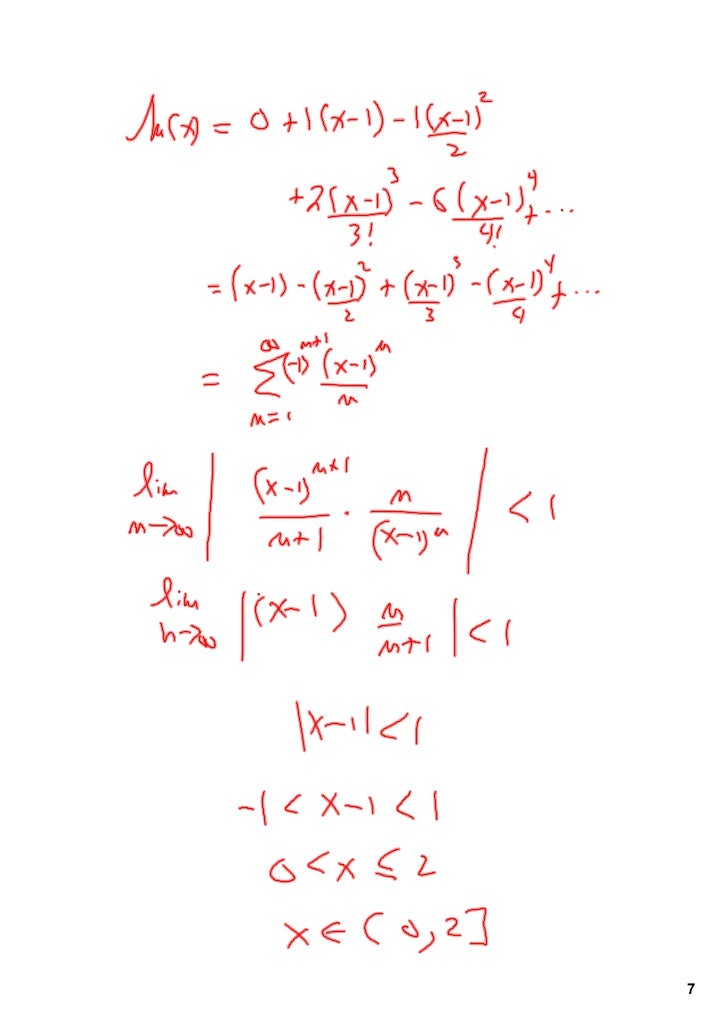 ln(x) = 0 + 1(x-1) - 1(x-1)²/2
+ 2(x-1)³/3! - 6(x-1)⁴/4! + ...
= (x-1) - (x-1)²/2 + (x-1)³/3 - (x-1)⁴/4 + ...
= ∑_{n=1}^{∞} (-1)^{n+1} (x-1)^n/n
lim_{n→∞} | (x-1)^{n+1}/(n+1) · n/(x-1)^n | < 1
lim_{n→∞} | (x-1) n/(n+1) | < 1
|x-1| < 1
-1 < x-1 < 1
0 < x ≤ 2
x ∈ (0,2]
7